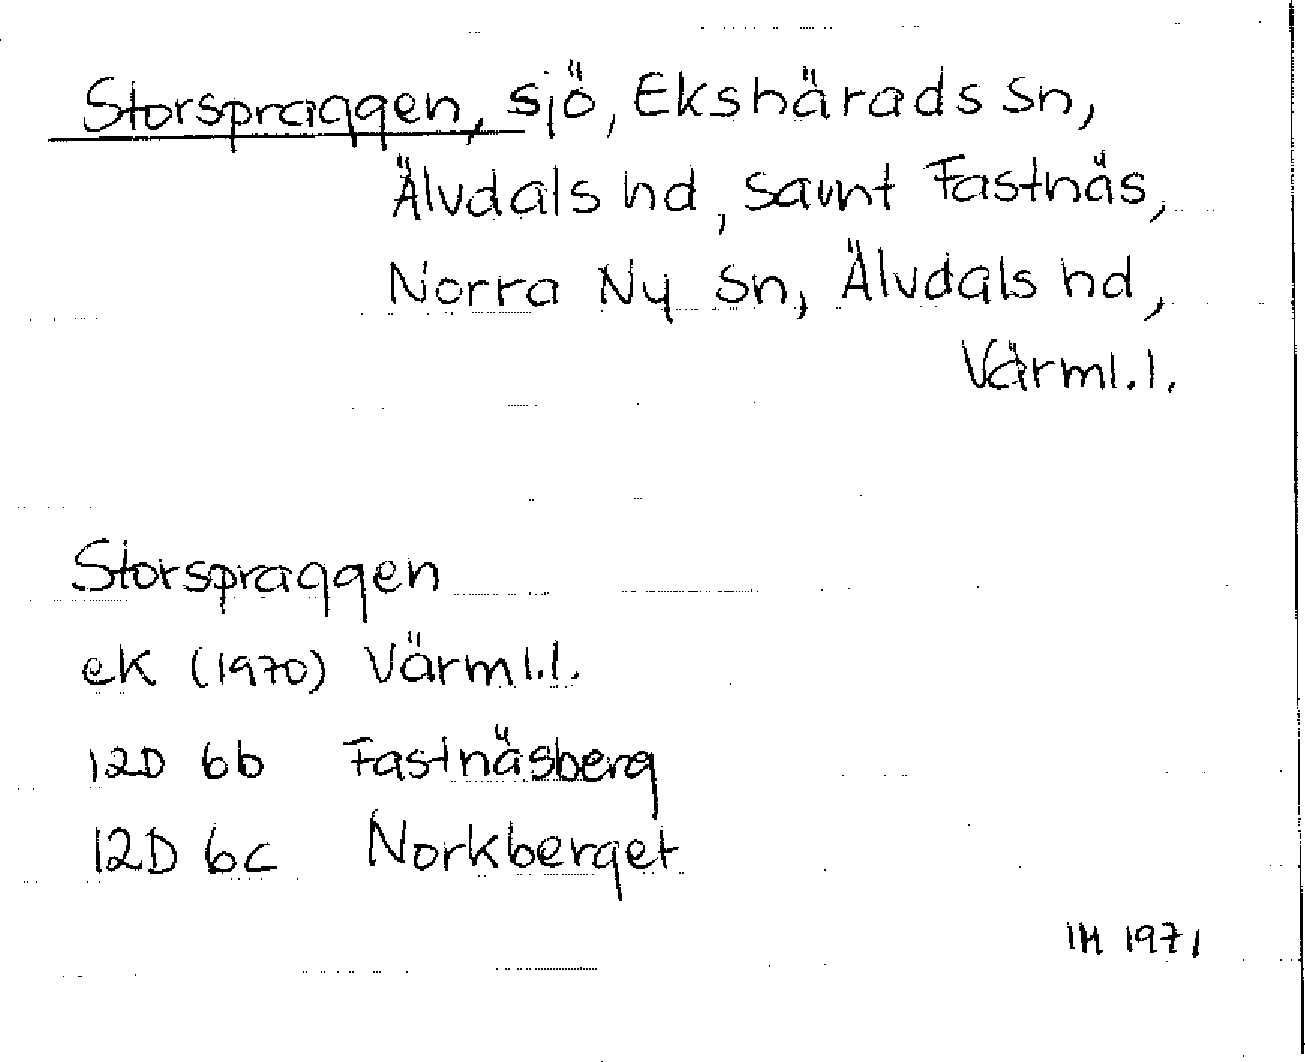 Storspraggen, sjö, Ekshärads sn,
Älvdals hd, samt Fastnäs,
Norra Ny sn, Älvdals hd,
Värml.l.
Storspraggen
eK (1970) Värml.l.
12D 6b Fastnäsberg
12D 6c Norkberget
IH 1971